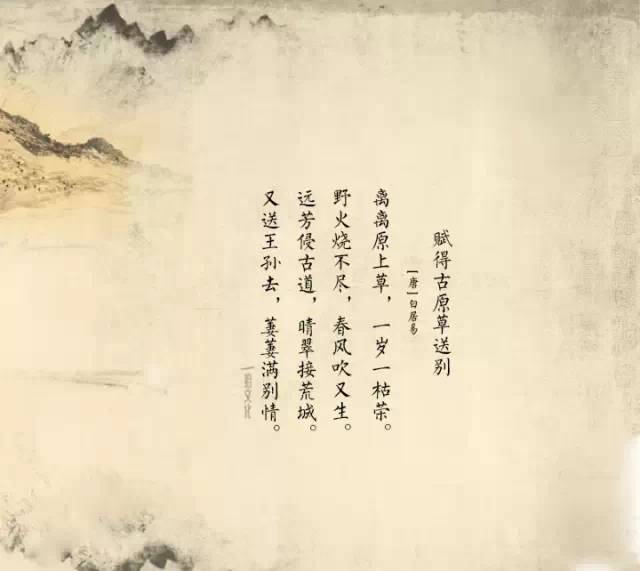 赋得古原草送别
[唐]白居易
离离原上草，一岁一枯荣。
野火烧不尽，春风吹又生。
远芳侵古道，晴翠接荒城。
又送王孙去，萋萋满别情。